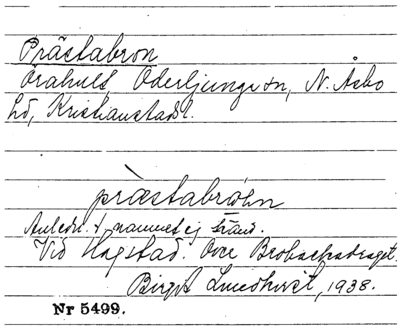 Prästabron
Örahult, Öderljunga sn, N. Åsbo
hd, Kristianstads l.
præstabrωn
Anledn. t. namnet ej känd.
Vid Hagstad. Över
Birgit Lundkvist, 1938.
Nr 5499.